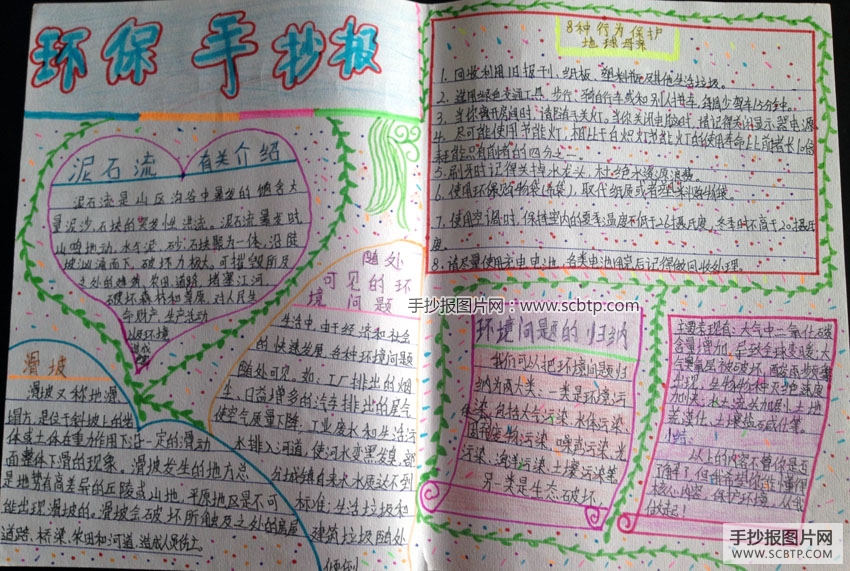 环保手抄报
泥石流 有关介绍
泥石流是山区沟谷中暴发的饱含大
量泥沙、石块的突发性洪流。泥石流暴发时
山鸣地动,水、泥、砂、石块聚为一体,沿陡
坡汹涌而下,破坏力极大,可摧毁所及
之处的建筑、农田、道路,堵塞江河
破坏森林和草原,对人民生
命财产、生产活动
以及环境
造成
滑坡
滑坡又称地滑
塌方,是位于斜坡上的岩
体或土体在重力作用下沿一定的滑动
面整体下滑的现象。滑坡发生的地方总
是地势有高差异的丘陵或山地,平原地区是不可
能出现滑坡的。滑坡会破坏所触及之处的房屋
道路、桥梁、农田和河道,造成人员伤亡。
随处
可见的环
境问题
生活中,由于经济和社会
的快速发展,各种环境问题
随处可见。如:工厂排出的烟
尘、日益增多的汽车排出的尾气
使空气质量下降;工业废水和生活污
水排入河道,使河水变黑发臭,部
分城镇自来水水质达不到
标准;生活垃圾和
建筑垃圾随处
倾倒
8种行为保护
地球母亲
1.回收利用旧报刊、纸板、塑料瓶及其他生活垃圾。
2、选用绿色交通工具、步行、骑自行车或和别人拼车,每周少驾车15分钟。
3、当你离开房间时,请随手关灯。当你关闭电脑时,请记得关闭显示器电源
4、尽可能使用节能灯,相比于白炽灯节能灯的使用寿命比前者长10倍
耗能只有前者的四分之一。
5、刷牙时记得关掉水龙头,杜绝水资源浪费。
6、使用环保购物袋(布袋),取代纸质或者塑料购物袋。
7、使用空调时,保持室内的夏季温度不低于26摄氏度,冬季时不高于20摄氏
度。
8、请尽量使用充电电池,各类电池用完后记得做回收处理。
手抄报图片网:www.scbtp.com
环境问题的归纳
我们可以把环境问题归
纳为两大类:一类是环境污
染,包括大气污染、水体污染
固体废物污染、噪声污染、光
污染、海洋污染、土壤污染等
另一类是生态破坏,
主要表现有:大气中二氧化碳
含量增加,导致全球变暖;大
气臭氧层被破坏;酸雨频繁
出现;生物物种灭绝速度
加快;水土流失加剧;土地
荒漠化、土壤盐碱化等。
小结:
以上的内容不管你是否
了解了,但我希望你能懂得
核心内容,保护环境,从我
做起!
手抄报图片网
WWW.SCBTP.COM